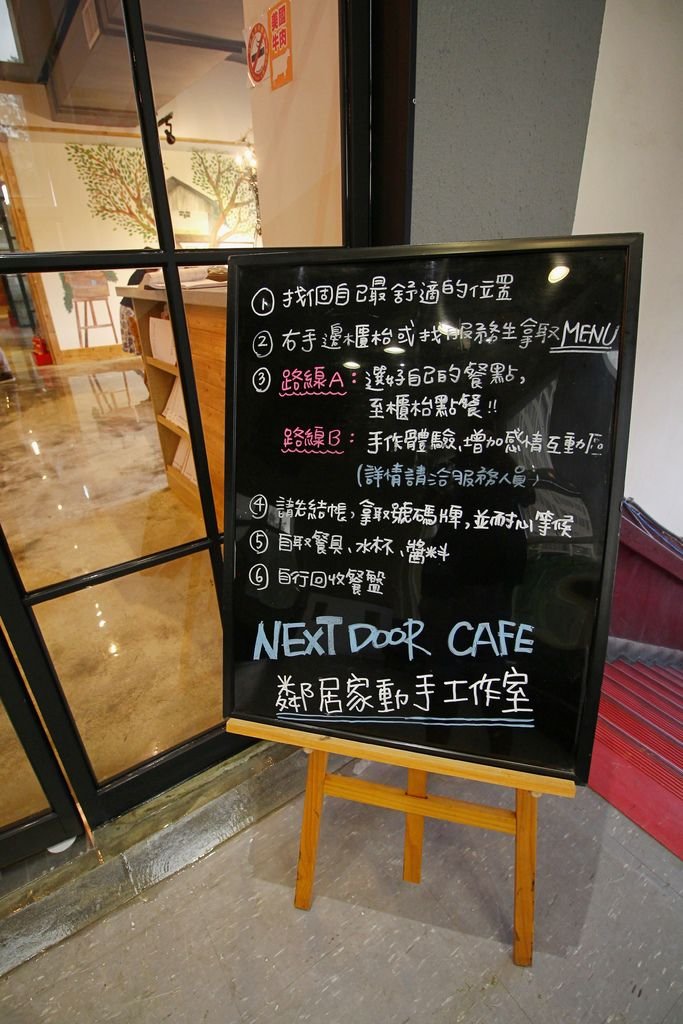 美國
牛肉
① 找個自己最舒適的位置
② 右手邊櫃枱或找服務生拿取MENU
③ 路線A：選好自己的餐點，
至櫃枱點餐!!
路線B：手作體驗，增加感情互動
(詳情請洽服務人員)
④ 請先結帳，拿取號碼牌，並耐心等候
⑤ 自取餐具、水杯、醬料
⑥ 自行回收餐盤
NEXT DOOR CAFE
鄰居家動手工作室